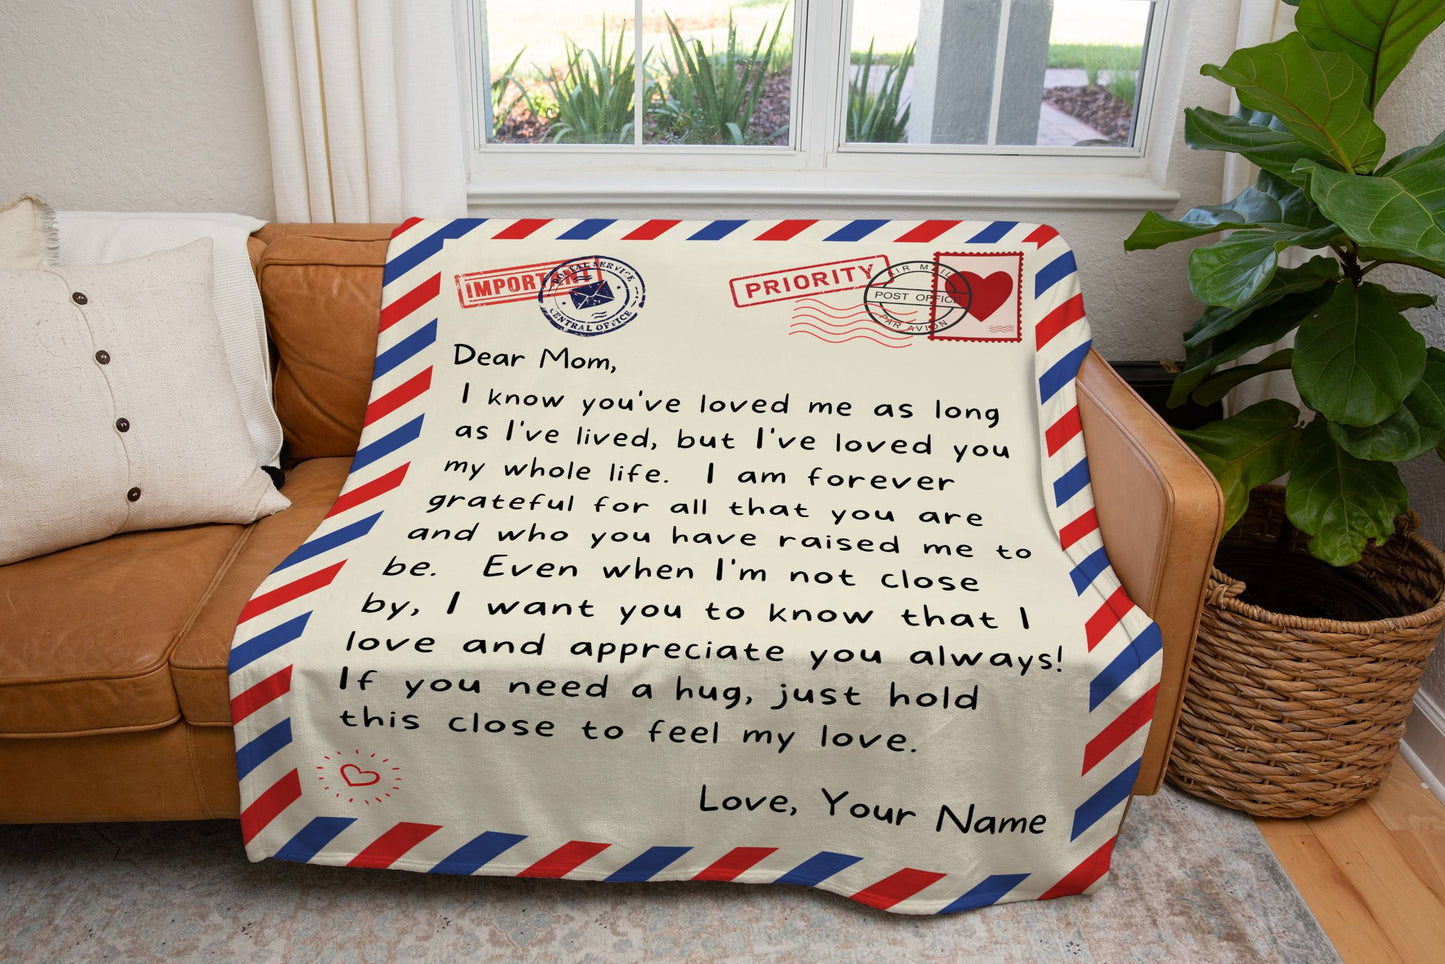 IMPORTANT
POSTAL SERVICE
CENTRAL OFFICE
PRIORITY
AIR MAIL
POST OFFICE
PAR AVION
Dear Mom,
I know you've loved me as long
as I've lived, but I've loved you
my whole life. I am forever
grateful for all that you are
and who you have raised me to
be. Even when I'm not close
by, I want you to know that I
love and appreciate you always!
If you need a hug, just hold
this close to feel my love.
Love, Your Name